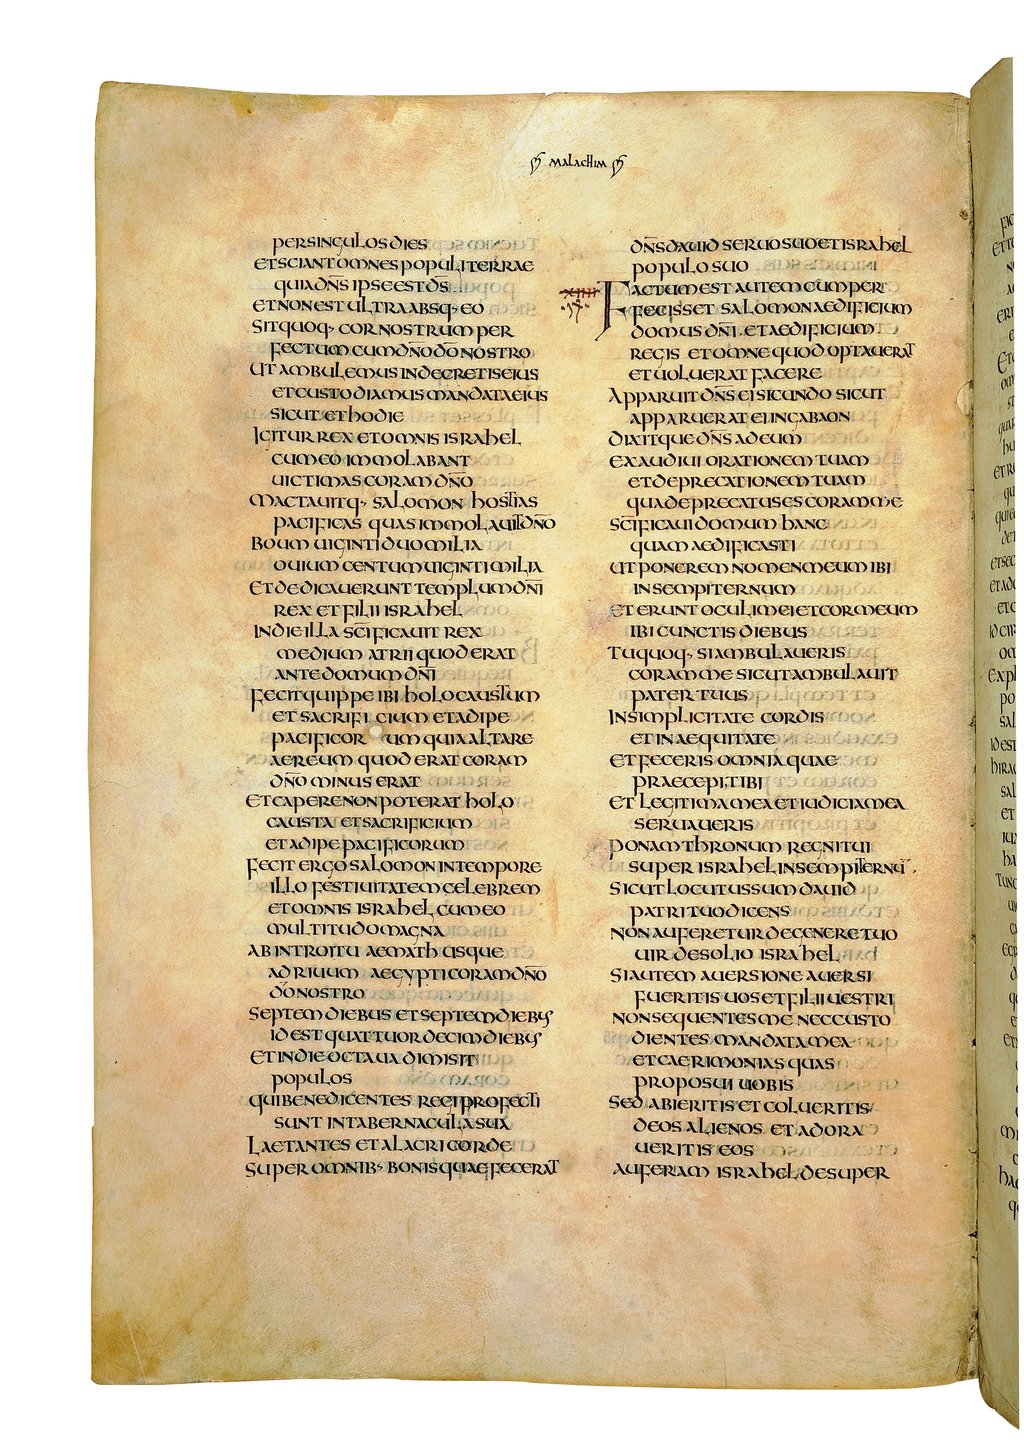 MALACHIM
PER SINGULOS DIES
ET SCIANT OMNES POPULI TERRAE
QUIA DN̄S IPSE EST DS̄
ET NON EST ULTRA ABSQ· EO
SIT QUOQ· COR NOSTRUM PER
FECTUM CUM DN̄O DŌ NOSTRO
UT AMBULEMUS IN DECRETIS EIUS
ET CUSTODIAMUS MANDATA EIUS
SICUT ET HODIE
IGITUR REX ET OMNIS ISRAHEL
CUM EO IMMOLABANT
UICTIMAS CORAM DN̄O
MACTAUITQ· SALOMON HOSTIAS
PACIFICAS QUAS IMMOLAUIT DN̄O
BOUM UIGINTI DUO MILIA
OUIUM CENTUM UIGINTI MILIA
ET DEDICAUERUNT TEMPLUM DN̄I
REX ET FILII ISRAHEL
IN DIE ILLA SC̄IFICAUIT REX
MEDIUM ATRII QUOD ERAT
ANTE DOMUM DN̄I
FECIT QUIPPE IBI HOLOCAUSTUM
ET SACRIFICIUM ET ADIPE
PACIFICORUM QUIA ALTARE
AEREUM QUOD ERAT CORAM
DN̄O MINUS ERAT
ET CAPERE NON POTERAT HOLO
CAUSTA ET SACRIFICIUM
ET ADIPE PACIFICORUM
FECIT ERGO SALOMON IN TEMPORE
ILLO FESTIUITATEM CELEBREM
ET OMNIS ISRAHEL CUM EO
MULTITUDO MAGNA
AB INTROITU AEMATH USQUE
AD RIUUM AEGYPTI CORAM DN̄O
DŌ NOSTRO
SEPTEM DIEBUS ET SEPTEM DIEBUS
ID EST QUATTUORDECIM DIEBUS
ET IN DIE OCTAUA DIMISIT
POPULOS
QUI BENEDICENTES REGI PROFECTI
SUNT IN TABERNACULA SUA
LAETANTES ET ALACRI CORDE
SUPER OMNIB· BONIS QUAE FECERAT
DN̄S DAUID SERUO SUO ET ISRAHEL
POPULO SUO
FACTUM EST AUTEM CUM PER
FECISSET SALOMON AEDIFICIUM
DOMUS DN̄I · ET AEDIFICIUM
REGIS ET OMNE QUOD OPTAUERAT
ET UOLUERAT FACERE
APPARUIT DN̄S EI SICUNDO SICUT
APPARUERAT EI IN GABAON
DIXITQUE DN̄S AD EUM
EXAUDIUI ORATIONEM TUAM
ET DEPRECATIONEM TUAM
QUA DEPRECATUS ES CORAM ME
SC̄IFICAUI DOMUM HANC
QUAM AEDIFICASTI
UT PONEREM NOMEN MEUM IBI
IN SEMPITERNUM
ET ERUNT OCULI MEI ET COR MEUM
IBI CUNCTIS DIEBUS
TU QUOQ· SI AMBULAUERIS
CORAM ME SICUT AMBULAUIT
PATER TUUS
IN SIMPLICITATE CORDIS
ET IN AEQUITATE
ET FECERIS OMNIA QUAE
PRAECEPI TIBI
ET LEGITIMA MEA ET IUDICIA MEA
SERUAUERIS
PONAM THRONUM REGNI TUI
SUPER ISRAHEL IN SEMPITERNŪ
SICUT LOCUTUS SUM DAUID
PATRI TUO DICENS
NON AUFERETUR DE GENERE TUO
UIR DE SOLIO ISRAHEL
SI AUTEM AUERSIONE AUERSI
FUERITIS UOS ET FILII UESTRI
NON SEQUENTES ME NEC CUSTO
DIENTES MANDATA MEA
ET CAERIMONIAS QUAS
PROPOSUI UOBIS
SED ABIERITIS ET COLUERITIS
DEOS ALIENOS ET ADORA
UERITIS EOS
AUFERAM ISRAHEL DE SUPER